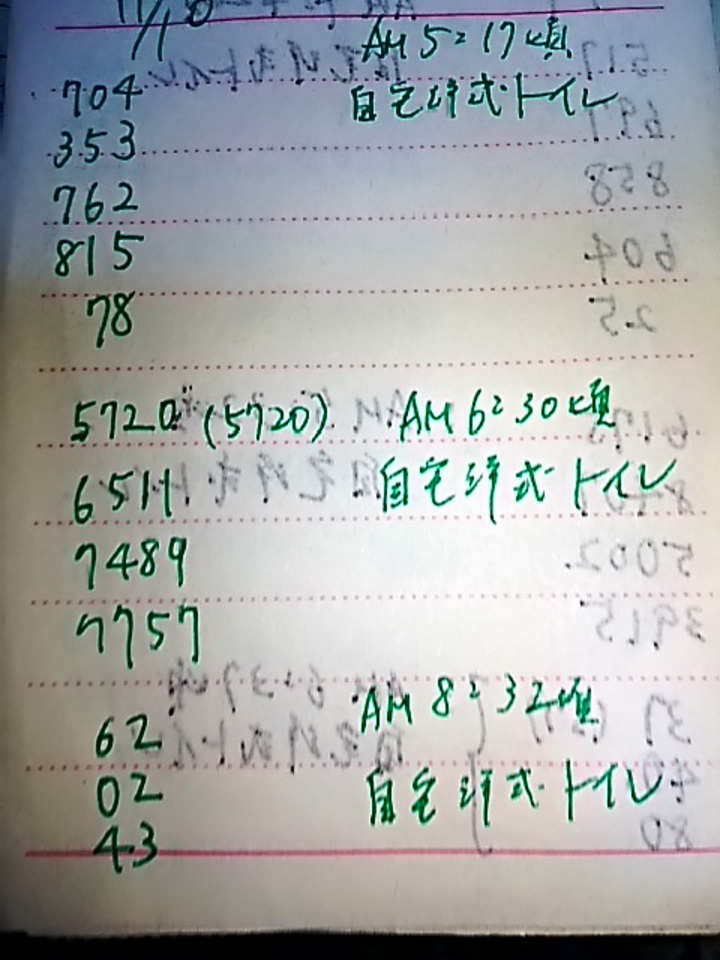 11/10
AM 5:17頃
704 自宅洋式トイレ
353
762
815
78
5720 (5720) AM 6:30頃
6511 自宅洋式トイレ
7489
7757
62 AM 8:32頃
02 自宅洋式トイレ
43